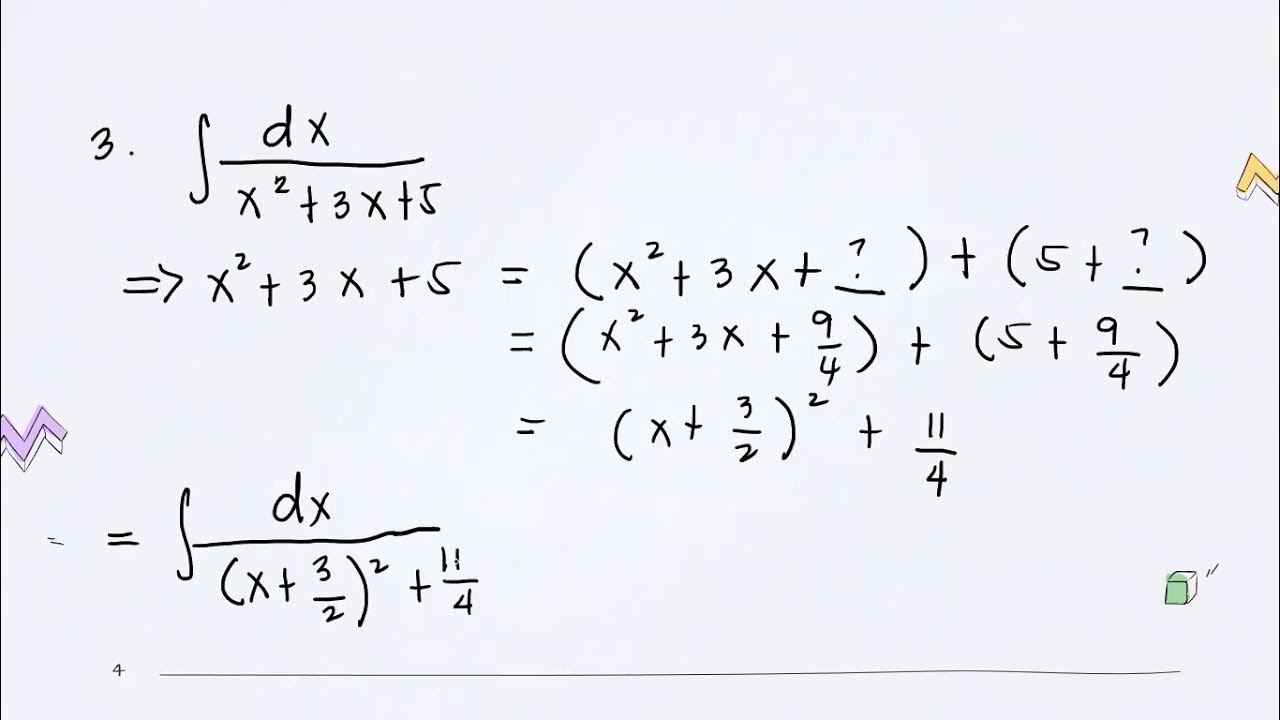 3. ∫ dx / (x² + 3x + 5)
=> x² + 3x + 5 = (x² + 3x + ?) + (5 + ?)
= (x² + 3x + 9/4) + (5 + 9/4)
= (x + 3/2)² + 11/4
= ∫ dx / ((x + 3/2)² + 11/4)
4